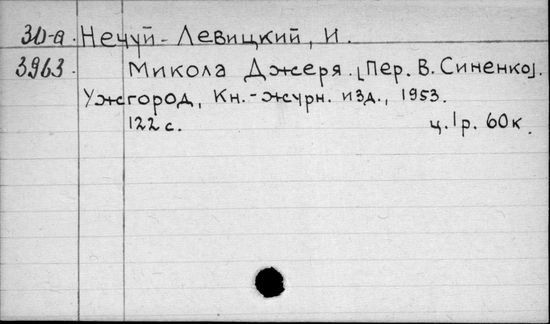 30-а Нечуй-Левицкий, И.
3963. Микола Джеря. [Пер. В. Синенко].
Ужгород, Кн.-журн. изд., 1953.
122 с. ц. 1 р. 60 к.